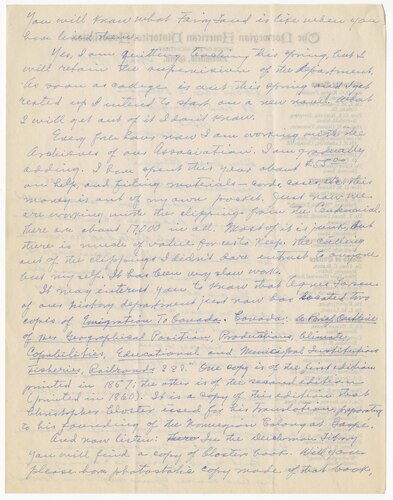 You will know what Fairy Land is like when you
have read them.
Yes, I am quitting teaching this spring, but I
will retain the supervision of the department.
As soon as college is out this spring and I get
rested up I intend to start on a new novel. What
I will get out of it I don't know.
Every free hour now I am working with the
Archives of our Association. I am gradually
adding. I have spent this year about $55.00
on help, and filing materials - cards, cases, etc. this
money is out of my own pocket. Just now we
are working with the clippings from the Centennial.
there are about 17,000 in all. Most of it is junk, but
there is much of value for us to keep. the culling
out of the clippings I didn't dare entrust to anyone
but myself. It has been very slow work.
It may interest you to know that Agnes Larson
of our history department just now has located two
copies of Emigration To Canada. Canada: A Brief Outline
of Her Geographical Position, Productions, Climate,
Capabilities, Educational and Municipal Institutions
Fisheries, Railroads &&. One copy is of the first edition
printed in 1857; the other is of the second edition
(printed in 1860). It is a copy of this edition that
Christopher Closter used for his translation, preparatory
to his founding of the Norwegian Colony at Gaspe.
And now listen: In the Library
You will find a copy of Closter book. Will you
please have photostatic copy made of that book,